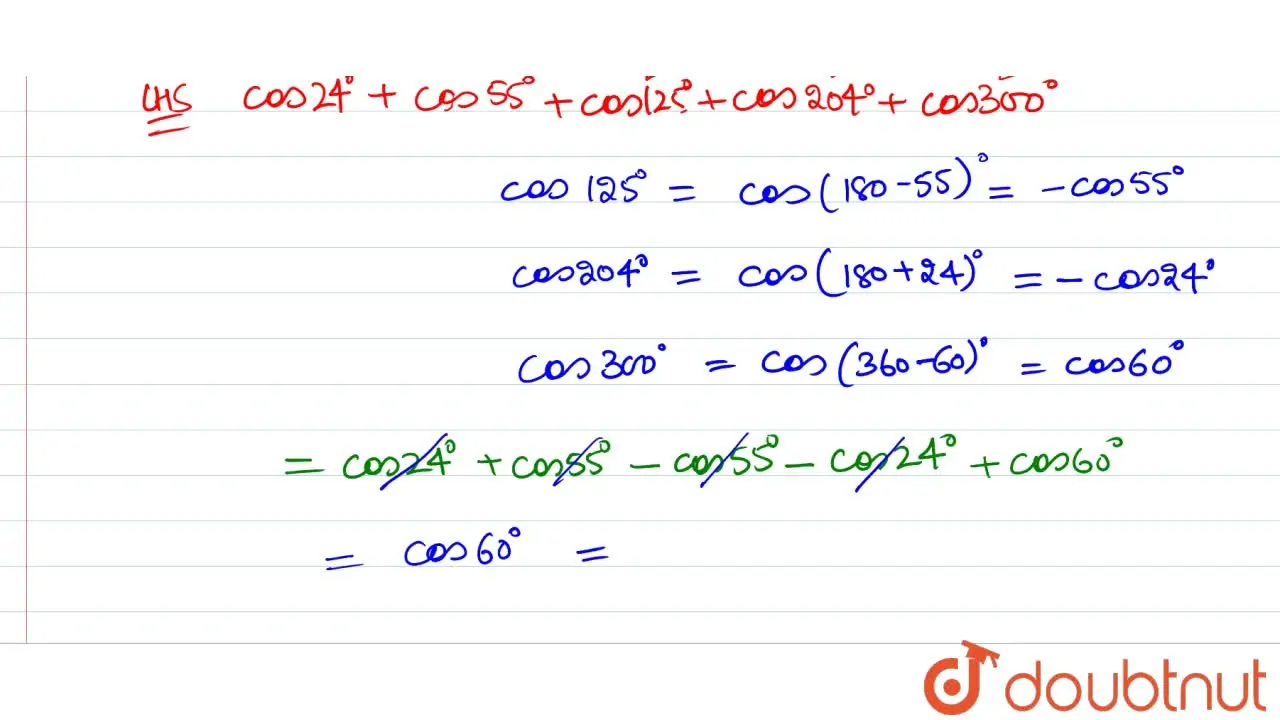 LHS cos24° + cos55° + cos125° + cos204° + cos300°
cos125° = cos(180-55)° = -cos55°
cos204° = cos(180+24)° = -cos24°
cos300° = cos(360-60)° = cos60°
= cos24° + cos55° - cos55° - cos24° + cos60°
= cos60° =
doubtnut